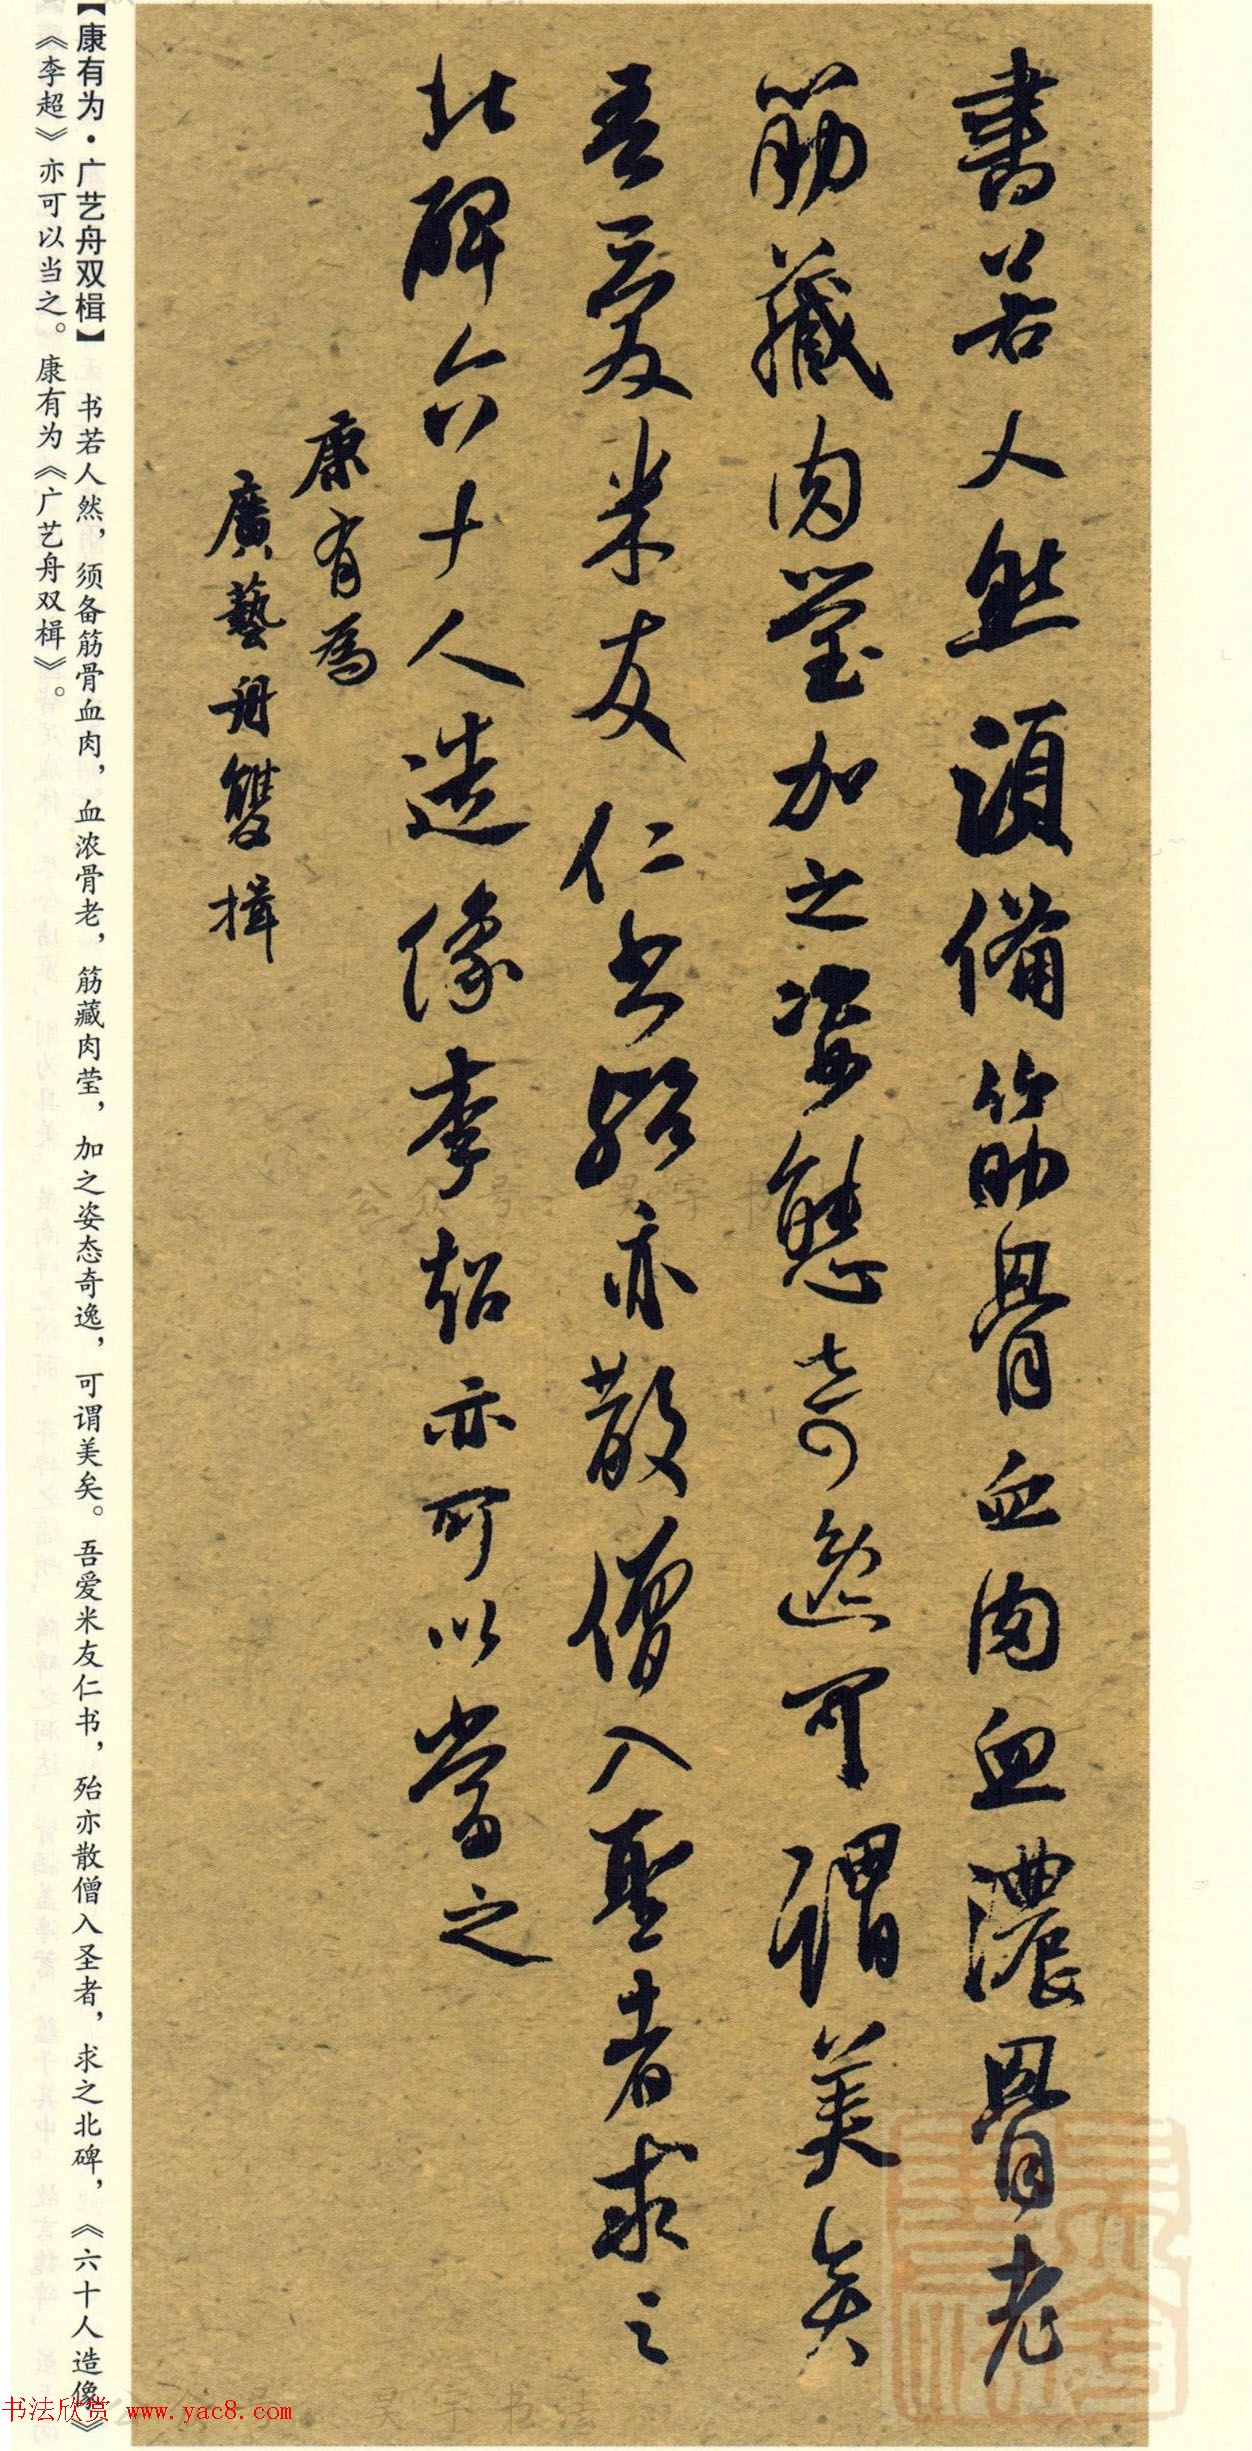 書若人然須備筋骨血肉血濃骨老
筋藏肉瑩加之姿態奇逸可謂美矣
吾愛米友仁书殆亦散僧入聖者求之
北碑六十人造像李超亦可以當之
康有為
廣藝舟雙楫
【康有为·广艺舟双楫】 书若人然，须备筋骨血肉，血浓骨老，筋藏肉莹，加之姿态奇逸，可谓美矣。吾爱米友仁书，殆亦散僧入圣者，求之北碑，《六十人造像》
《李超》亦可以当之。康有为《广艺舟双楫》。
书法欣赏 www.yac8.com